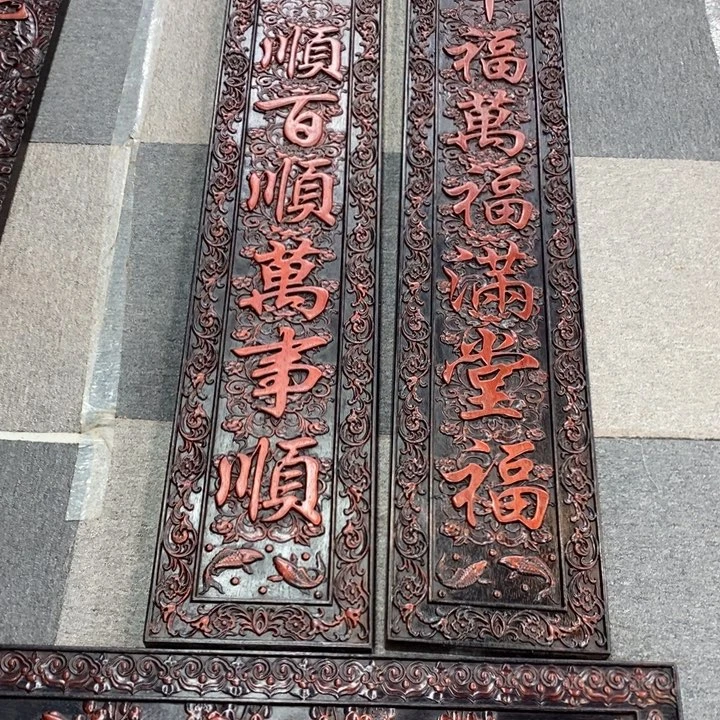 順百順萬事順
福萬福滿堂福